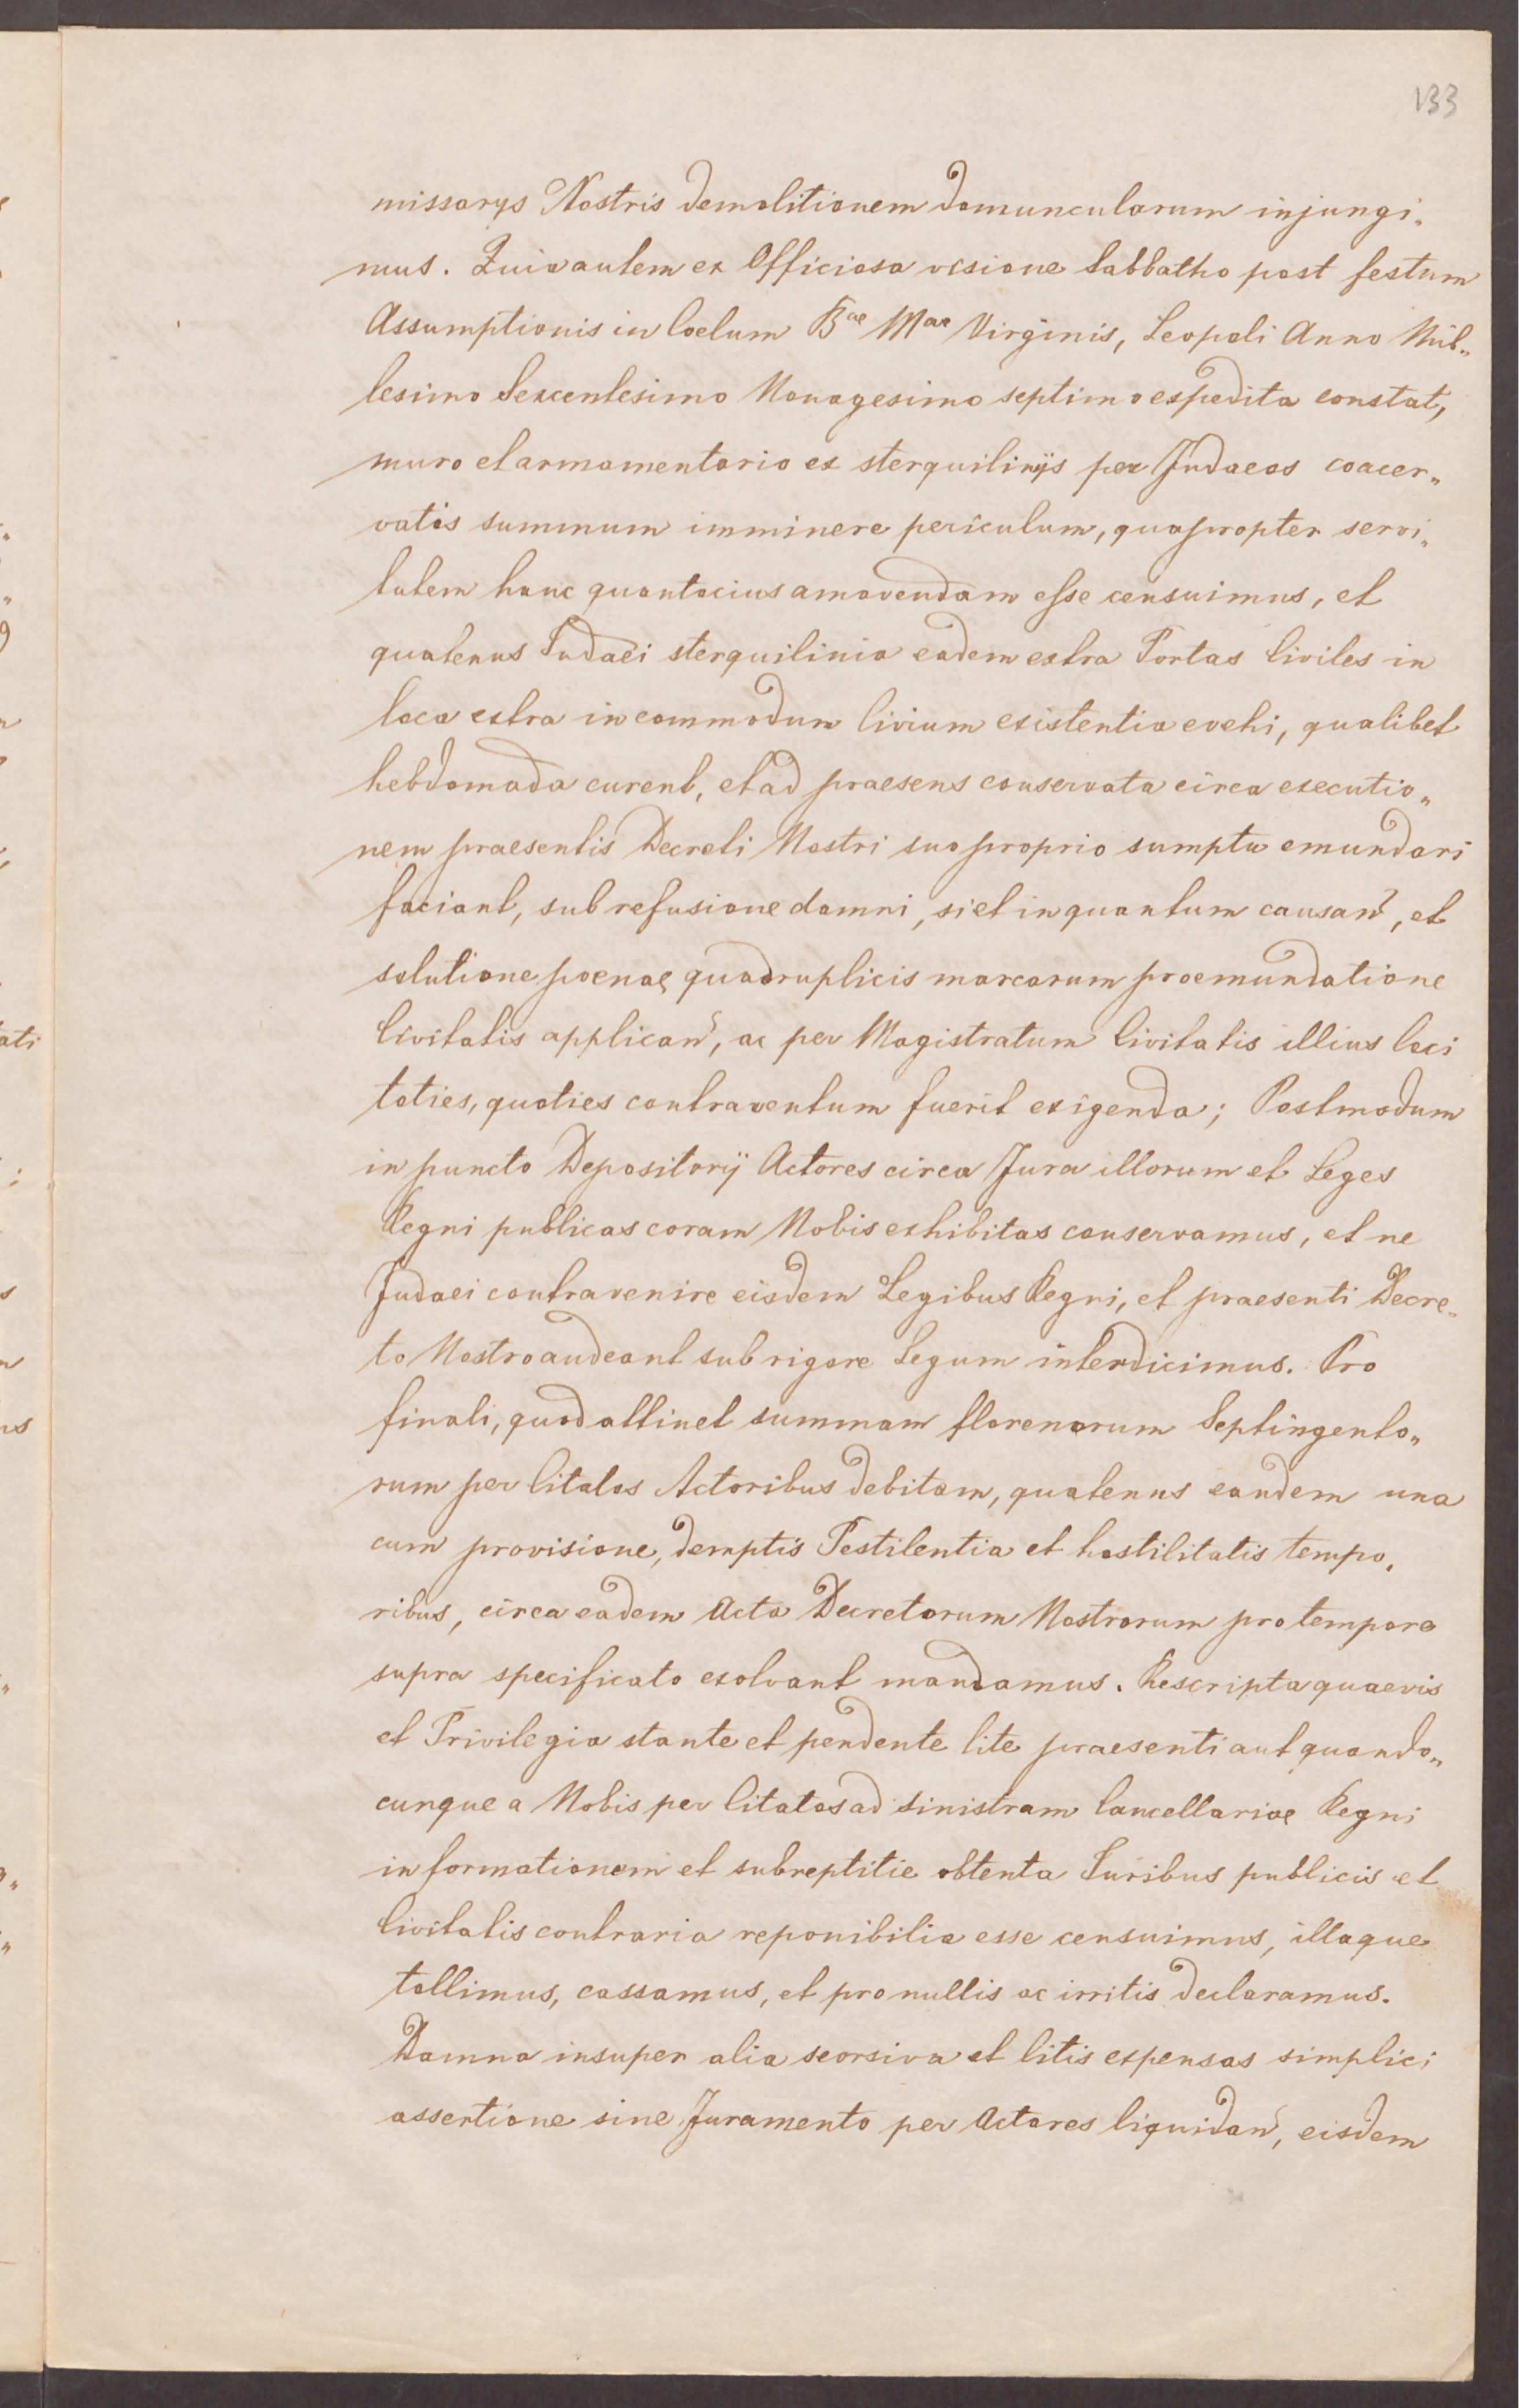 133
missarys Nostris demolitionem domuncularum injungi„
mus. Quia autem ex Officiosa visione Sabbatho post festum
Assumptionis in Coelum Bae Mae Virginis, Leopoli Anno Mil„
lesimo Sexcentesimo Nonagesimo septimo expedita constat,
muro et armamentario ex sterquilinijs per Judaeos coacer„
vatis summum imminere periculum, quapropter servi„
tutem hanc quantocius amovendam esse censuimus, et
quatenus Judaei sterquilinia eadem extra Portas Civiles in
loca extra incommodum Civium existentia evehi, qualibet
hebdomada curent, et ad praesens conservata circa executio„
nem praesentis Decreti Nostri suo proprio sumptu emundari
faciant, sub refusione damni, si et in quantum causan̄, et
solutione poenae quadruplicis marcarum pro emundatione
Civitatis applican̄, ac per Magistratum Civitatis illius loci
toties, quoties contraventum fuerit exigenda; Postmodum
in puncto Depositorij Actores circa Jura illorum et Leges
Regni publicas coram Nobis exhibitas conservamus, et ne
Judaei contravenire eisdem Legibus Regni, et praesenti Decre„
to Nostro audeant sub rigore Legum interdicimus. Pro
finali, quod attinet summam florenorum Septingento„
rum per Citatos Actoribus debitam, quatenus eandem una
cum provisione, demptis Pestilentia et hostilitatis tempo„
ribus, circa eadem Acta Decretorum Nostrorum pro tempore
supra specificato exolvant mandamus. Rescripta quaevis
et Privilegia stante et pendente lite praesenti aut quando„
cunque a Nobis per Citatos ad sinistram Cancellariae Regni
informationem et subreptitie obtenta Juribus publicis et
Civitatis contraria reponibilia esse censuimus, illaque
tollimus, cassamus, et pro nullis ac irritis declaramus.
Damna insuper alia seorsiva et litis expensas simplici
assertione sine Juramento per Actores liquidan̄, eisdem